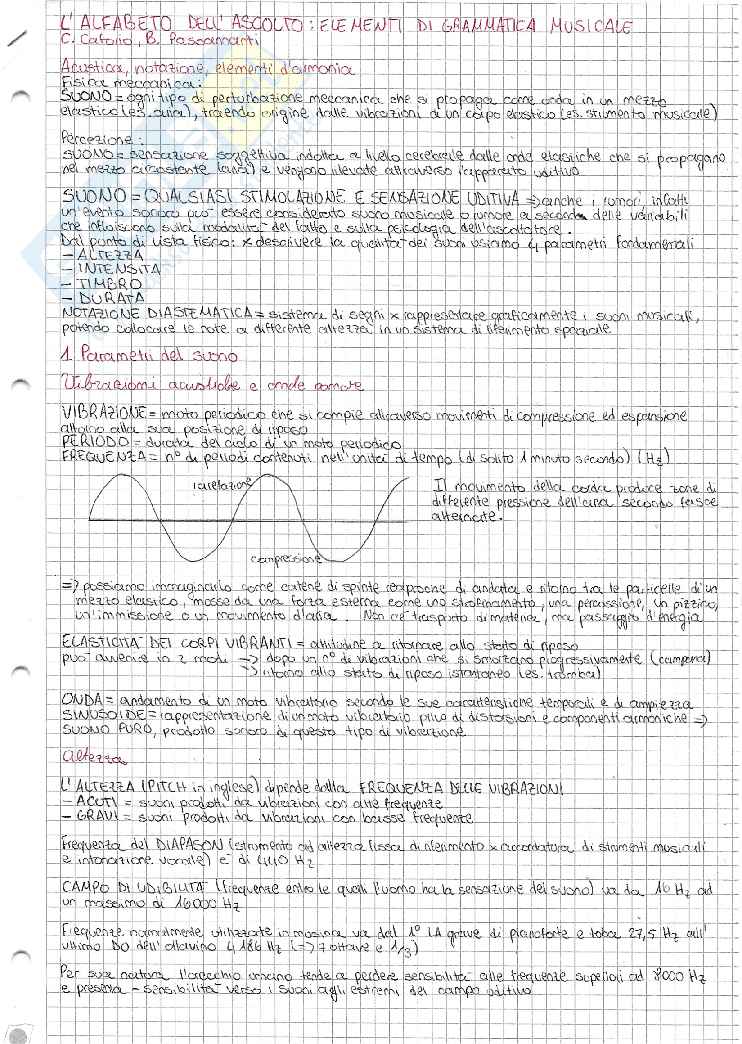 L'ALFABETO DELL'ASCOLTO: ELEMENTI DI GRAMMATICA MUSICALE
C. Cafoño, B. Passannanti
Acustica, notazione, elementi d'armonia
Fisica meccanica:
SUONO = ogni tipo di perturbazione meccanica che si propaga come onda in un mezzo
elastico (es. aria), traendo origine dalle vibrazioni di un corpo elastico (es. strumento musicale)
Percezione:
SUONO = sensazione soggettiva indotta a livello cerebrale dalle onde elastiche che si propagano
nel mezzo circostante (aria) e vengono rilevate attraverso l'apparato uditivo
SUONO = QUALSIASI STIMOLAZIONE E SENSAZIONE UDITIVA => anche i rumori, infatti
un'evento sonoro può essere considerato suono musicale o rumore a seconda delle variabili
che influiscono sulla modalità del fatto e sulla psicologia dell'ascoltatore.
Dal punto di vista fisico: x descrivere la qualità dei suoni usiamo 4 parametri fondamentali
- ALTEZZA
- INTENSITÀ
- TIMBRO
- DURATA
NOTAZIONE DIASTEMATICA = sistema di segni x rappresentare graficamente i suoni musicali,
potendo collocare le note a differente altezza in un sistema di riferimento spaziale
1. Parametri del suono
Vibrazioni acustiche e onde sonore
VIBRAZIONE = moto periodico che si compie attraverso movimenti di compressione ed espansione
attorno alla sua posizione di riposo
PERIODO = durata del ciclo di un moto periodico
FREQUENZA = n° di periodi contenuti nell'unità di tempo (di solito 1 minuto secondo) (Hz)
rarefazione
Il movimento della corda produce zone di
differente pressione dell'aria secondo fasce
alternate.
compressione
=> possiamo immaginarlo come catene di spinte reciproche di andata e ritorno tra le particelle di un
mezzo elastico, mosse da una forza esterna come uno strofinamento, una percussione, un pizzico,
un'immissione o un movimento d'aria. Non c'è trasporto di materia, ma passaggio d'energia
ELASTICITÀ DEI CORPI VIBRANTI = attitudine a ritornare allo stato di riposo
può avvenire in 2 modi -> dopo un n° di vibrazioni che si smorzano progressivamente (campana)
-> ritorno allo stato di riposo istantaneo (es. tromba)
ONDA = andamento di un moto vibratorio secondo le sue caratteristiche temporali e di ampiezza
SINUSOIDE = rappresentazione di un moto vibratorio privo di distorsioni e componenti armoniche =>
SUONO PURO, prodotto sonoro di questo tipo di vibrazione
Altezza
L'ALTEZZA (PITCH in inglese) dipende dalla FREQUENZA DELLE VIBRAZIONI
- ACUTI = suoni prodotti da vibrazioni con alte frequenze
- GRAVI = suoni prodotti da vibrazioni con basse frequenze
Frequenza del DIAPASON (strumento ad altezza fissa di riferimento x accordatura di strumenti musicali
e intonazione vocale) è di 440 Hz
CAMPO DI UDIBILITÀ (frequenze entro le quali l'uomo ha la sensazione del suono) va da 16 Hz ad
un massimo di 16000 Hz
Frequenze normalmente utilizzate in musica va dal 1° LA grave di pianoforte e tuba 27,5 Hz all'
ultimo DO dell'ottavino 4186 Hz (=> 7 ottave e 1/3)
Per sua natura l'orecchio umano tende a perdere sensibilità alle frequenze superiori ad 8000 Hz
e presenta - sensibilità verso i suoni agli estremi del campo uditivo